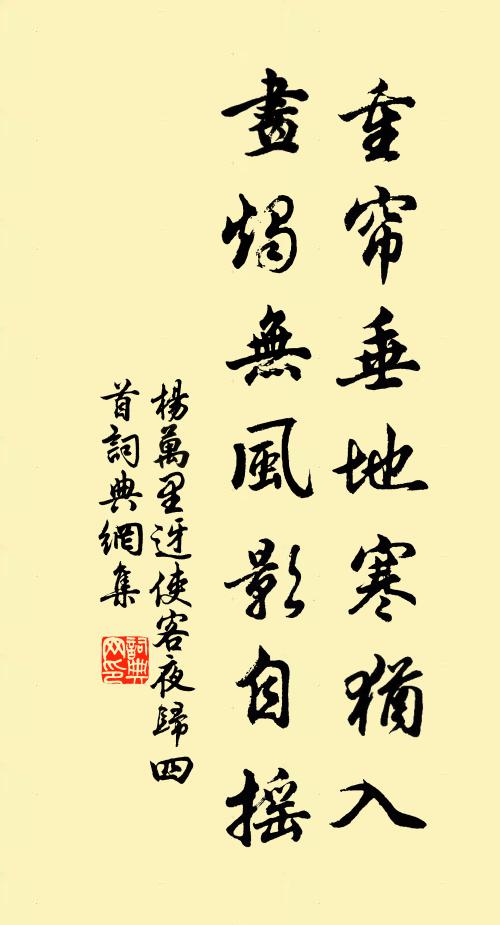 重帘垂地寒猶入
畫燭無風影自摇
楊萬里迓使客夜歸四
首詞典網集
詞典網印